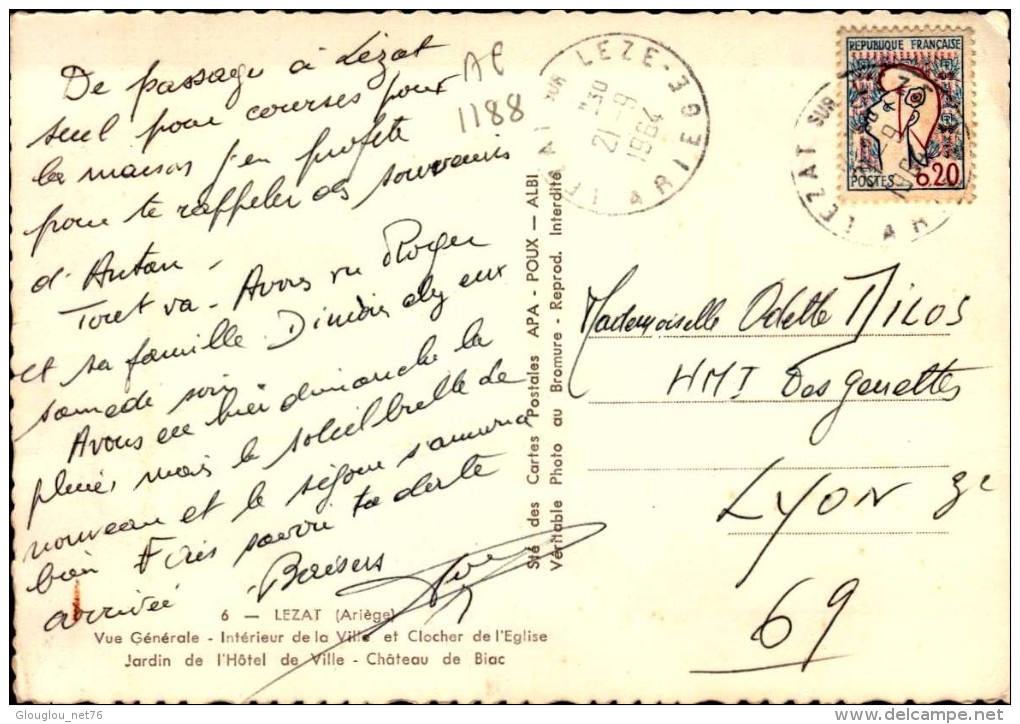 De passage à Lézat
seul pour courses pour
la maison j'en profite
pour te rappeler des souvenirs
d'Antan -
Tout va - Avons vu Roger
et sa famille. chez eux
samedi soir
Avons eu hier dimanche la
pluie, mais le soleil brille de
nouveau et le séjour s'annonce
bien Fais savoir ta date
arrivée Baisers
6 — LEZAT (Ariège)
Vue Générale - Intérieur de la Ville et Clocher de l'Eglise
Jardin de l'Hôtel de Ville - Château de Biac
AC
1188
LEZAT SUR LEZE - ARIEGE
21-9
1964
Sté des Cartes Postales APA - POUX — ALBI
Véritable Photo au Bromure - Reprod. Interdite
REPUBLIQUE FRANÇAISE
POSTES 0.20
LEZAT SUR
Mademoiselle Odette MILOS
HMI Desgenettes
LYON 3e
69
Glouglou_net76
www.delcampe.net